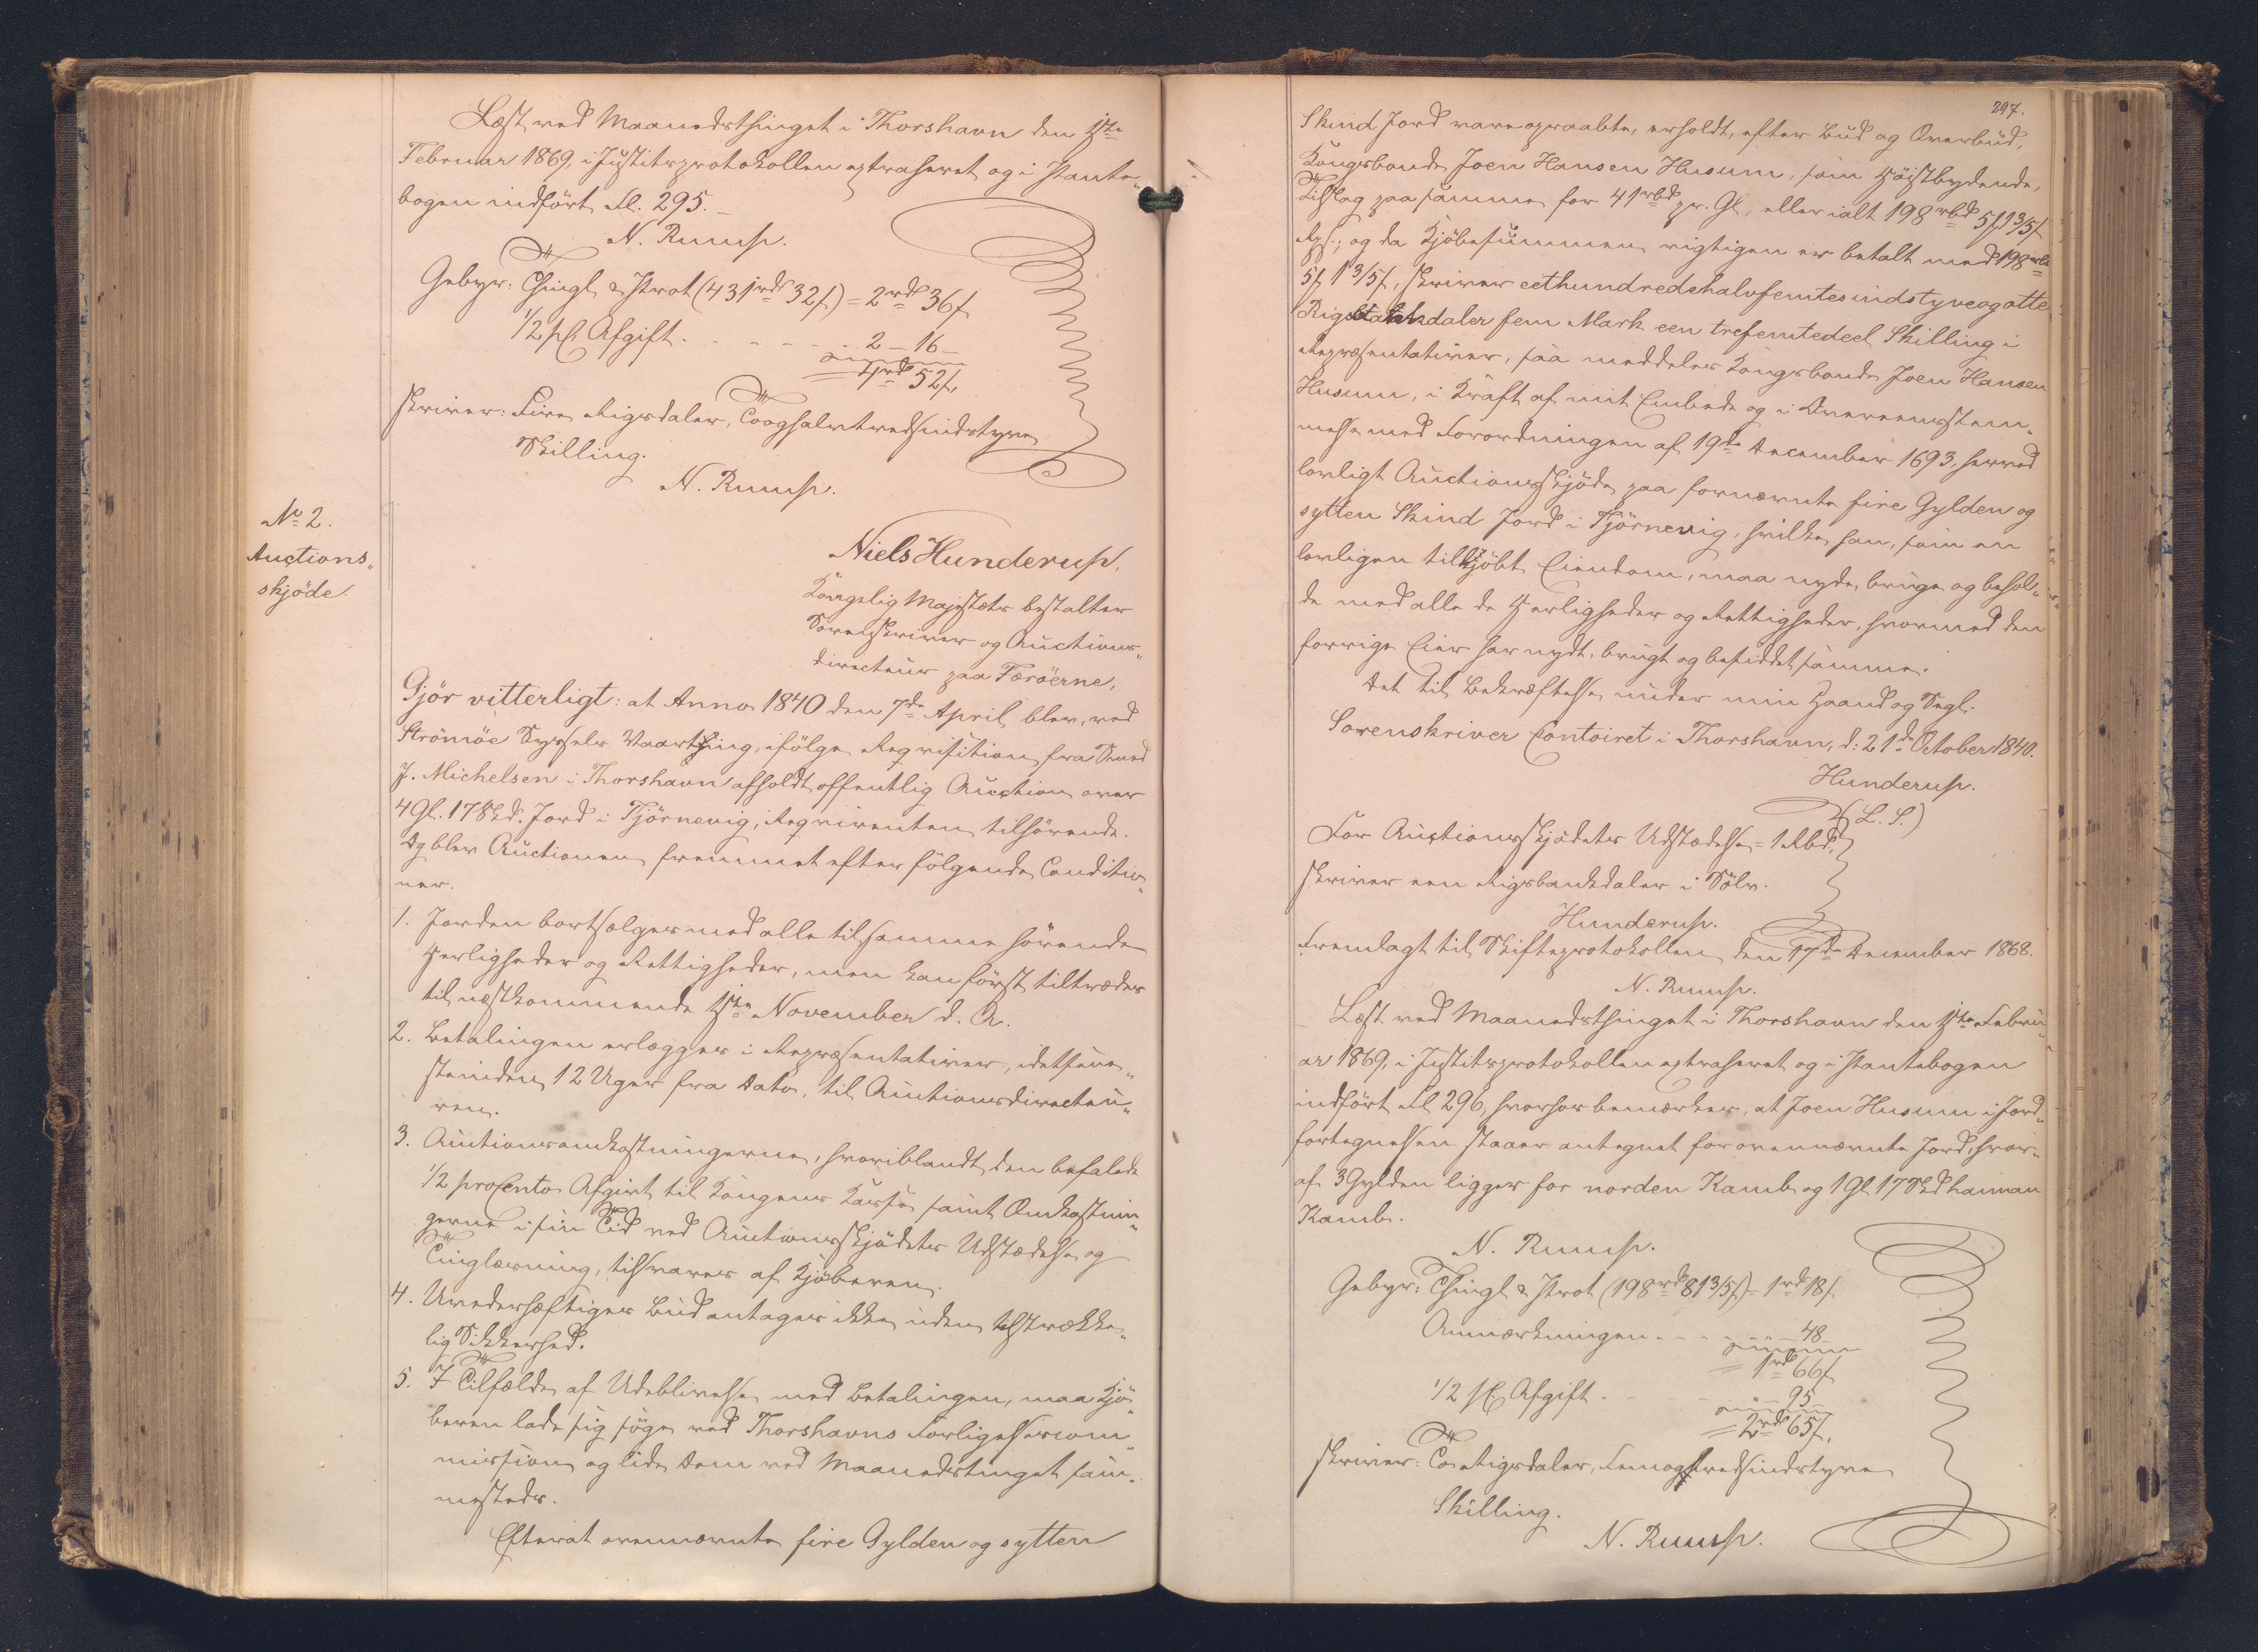 Læst ved Maanedsthinget i Thorshavn den 1ste
Februar 1869, i Justitsprotokollen extraheret og i Pante„
bogen indført Fl. 295.
N. Rumsp.
Gebyr: Thingl & Prot (431rd 32ſ) = 2rd 36ſ
1/2 pC Afgift . - - - - - 2 - 16 -
= 4rd 52ſ,
skriver: Fire Rigsdaler, Tooghalvtredsindstyve
Skilling.
N. Rumsp.
No 2.
Auctions„
skjöde.
Niels Hunderup,
Kongelig Majestæts bestalter
Sorenskriver og Auctions„
directeur paa Færöerne,
Gjör vitterligt: at Anno 1840 den 7de April blev, ved
Strömöe Syssels Vaarthing, ifölge Reqvisition fra Svend
J. Michelsen i Thorshavn afholdt offentlig Auction over
4 Gl. 17 Skd. Jord i Tjörnevig, Reqvirenten tilhörende.
Og blev Auctionen fremmet efter fölgende Conditio„
ner.
1. Jorden bortsælges med alle tilsamme hörende
Herligheder og Rettigheder, men kan först tiltrædes
til næstkommende 1ste November d. A.
2. Betalingen erlægges i Repræsentativer, idetsene„
ste inden 12 Uger fra Dato, til Auctionsdirecteu„
ren.
3. Auctionsomkostningerne, hvoriblandt den befalede
1/2 procento Afgivt til Kongens Kasse samt Omkostnin„
gerne i sin Tid ved Auctionsskjödets Udstædelse og
Tinglæsning, tilsvares af Kjöberen.
4. Uvederhæftiges Bud antages ikke uden tilstrække„
lig Sikkerhed.
5. I Tilfælde af Udeblivelse med Betalingen, maa Kjö„
beren lade sig söge ved Thorshavns Forligelsescom„
mission og lide Dom ved Maanedstinget sam„
mesteds.
Efterat ovennævnte fire Gylden og sytten
297.
Skind Jord vare opraabte, erholdt, efter Bud og Overbud,
Kongsbonde Joen Hansen Husum, som Höistbydende,
Tilslag paa samme for 41rbd pr. Gl., eller ialt 198rbd 5ſ 1 3/5ſ
Rps.; og da Kjöbesummen rigtigen er betalt med 198rbd
5ſ 1 3/5ſ, skriver eethundredehalvfemtesindstyveogotte
Rigsbankdaler fem Mark een trefemtedeel Skilling i
Repræsentativer, saa meddeles Kongsbonde Joen Hansen
Husum, i Kraft af mit Embede og i Overeensstem„
melse med Forordningen af 19de December 1693, herved
lovligt Auctionsskjöde paa fornævnte fire Gylden og
sytten Skind Jord i Tjörnevig, hvilke han, som en
lovligen tilkjöbt Eiendom, maa nyde, bruge og behol„
de med alle de Herligheder og Rettigheder, hvormed den
forrige Eier har nydt, brugt og besiddet samme.
Det til Bekræftelse under min Haand og Segl.
Sorenskriver Contoiret i Thorshavn, d: 21de October 1840.
Hunderup.
(L. S.)
For Auctionsskjödets Udstædelse = 1 Rbd.
skriver een Rigsbankdaler i Sölv.
Hunderup.
Fremlagt til Skifteprotokollen den 17de December 1868.
N. Rumsp.
Læst ved Maanedsthinget i Thorshavn den 1ste Febru„
ar 1869, i Justitsprotokollen extraheret og i Pantebogen
indfört Fl 296, hvorhos bemærkes, at Joen Husum i Jord„
fortegnelsen staaer antegnet for ovennævnte Jord, hvor„
af 3 Gylden ligger for norden Kamb og 1 Gl 17 Skd heiman
Kamb.
N. Rumsp.
Gebyr: Thingl & Prot (198rd 81 3/5ſ) = 1rd 18ſ
Anmærkningen - - - - 48 -
= 1rd 66ſ
1/2 pC Afgift . - - 95 -
= 2rd 65ſ,
skriver: To Rigsdaler, Femogtredsindstyve
Skilling.
N. Rumsp.